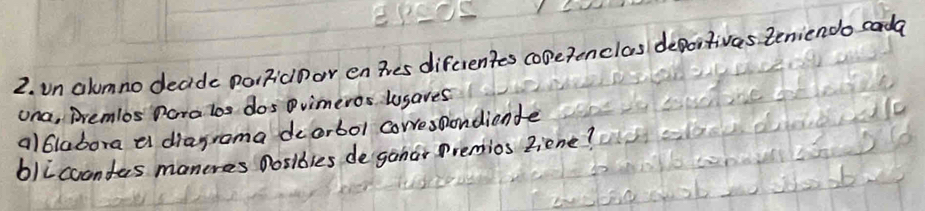 2. un alumno decide participar en tres diferentes copetencias deportivas teniendo cada
una, Premios Para los dos Primeros lugares
a) Elabora el diagrama de arbol correspondiente
b) ¿cuantas maneras Posibles de ganar Premios tiene?